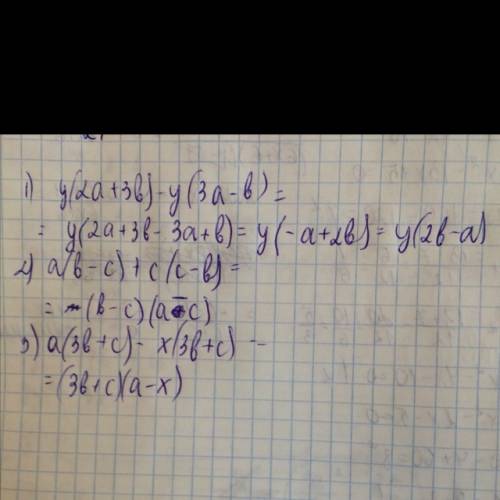 1) y(2a+3b)-y(3a-b)=
= y(2a+3b-3a+b)= y(-a+2b)= y(2b-a)
2) a(b-c)+c(c-b)=
= (b-c)(a-c)
3) a(3b+c)-x(3b+c) =
=(3b+c)(a-x)